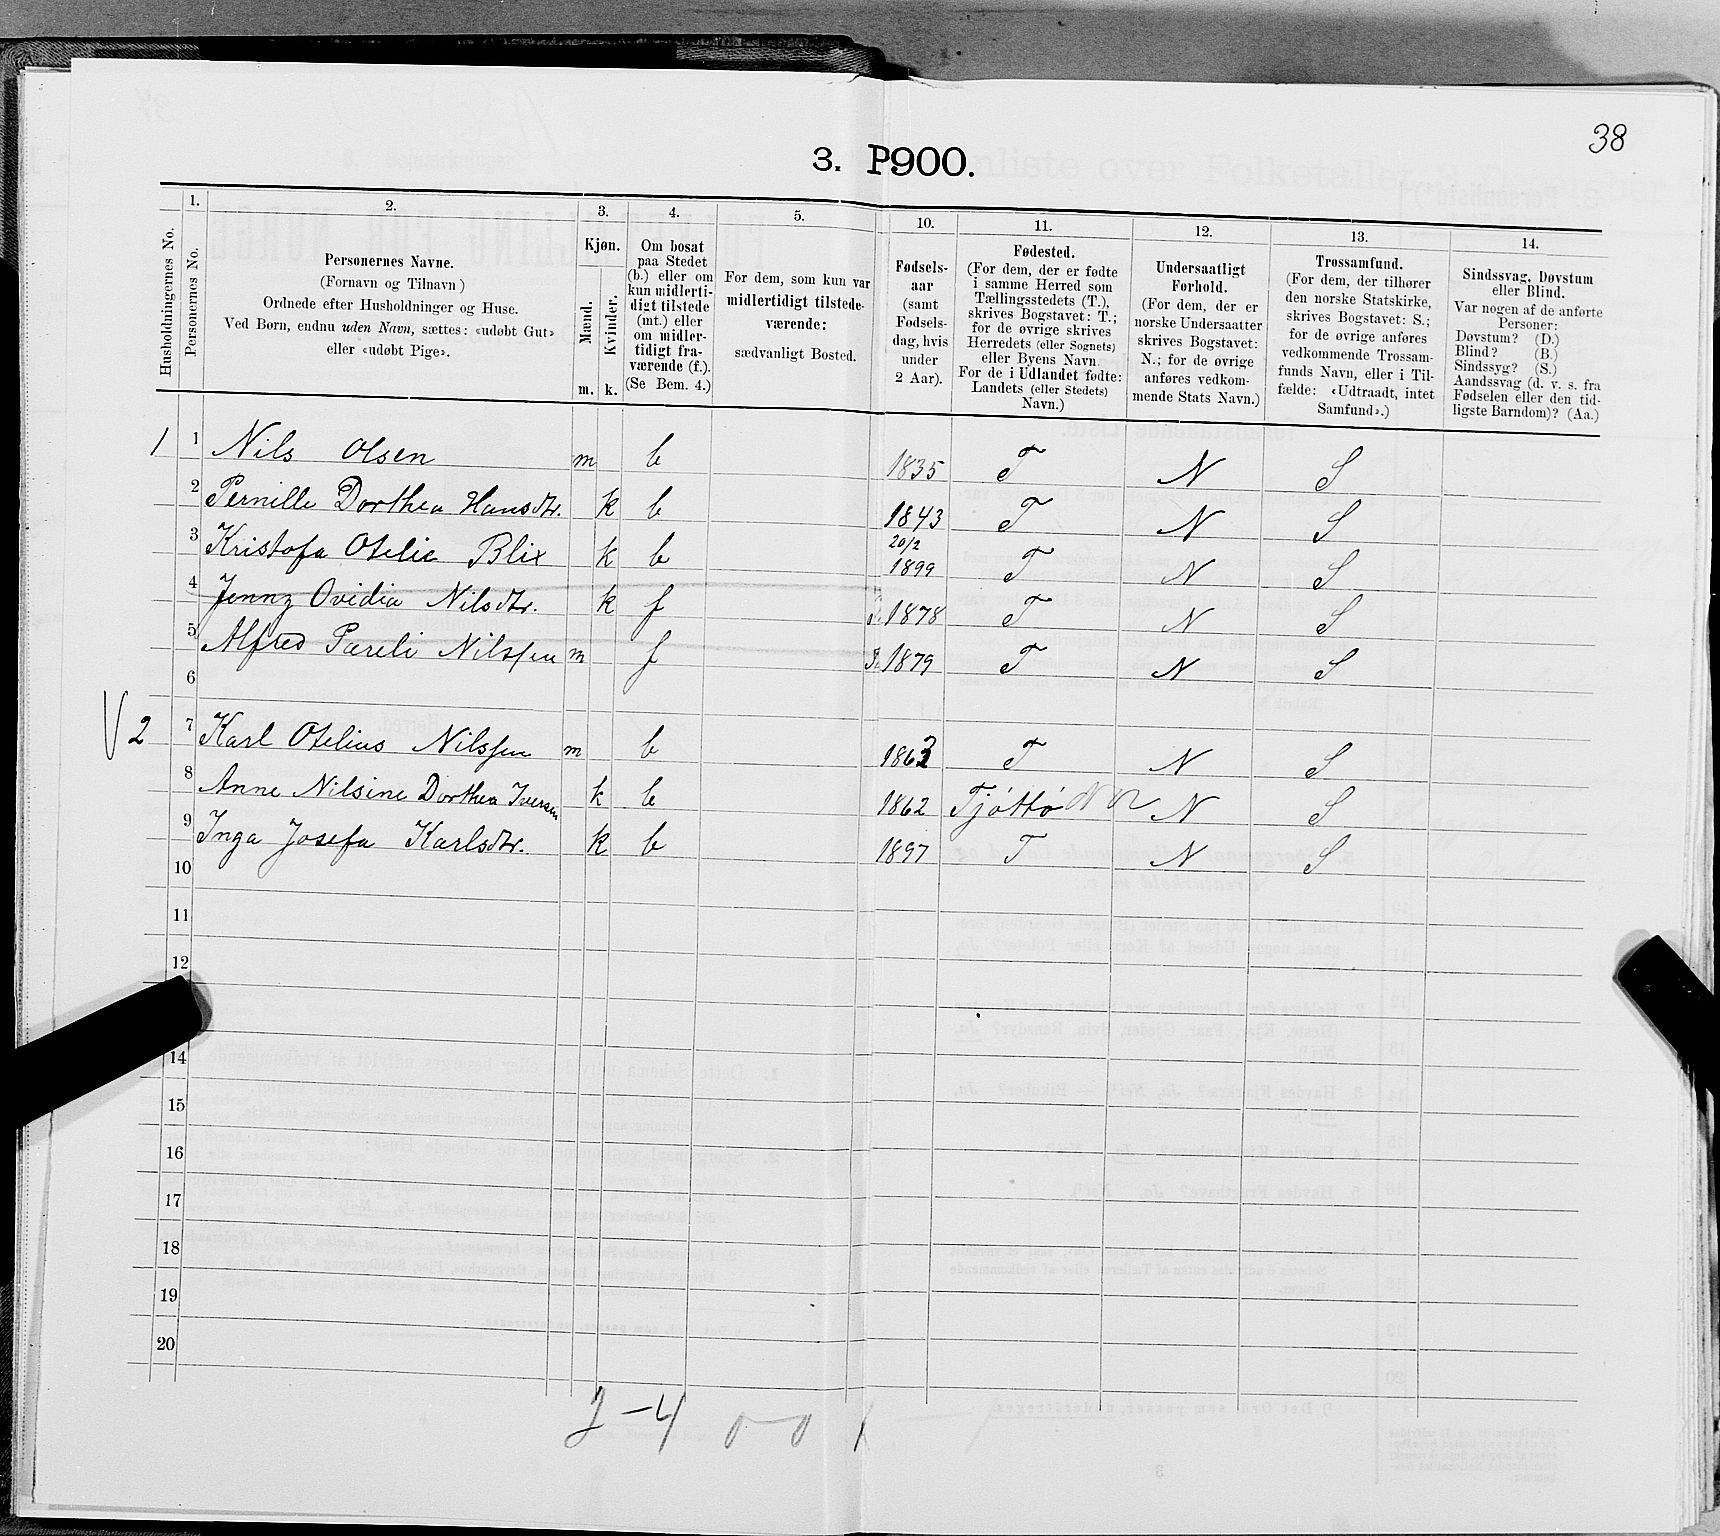 38
3. P900.
Husholdningernes No.
1.
Personernes No.
2.
Personernes Navne.
(Fornavn og Tilnavn)
Ordnede efter Husholdninger og Huse.
Ved Børn, endnu uden Navn, sættes: «udøbt Gut»
eller «udøbt Pige».
3.
Kjøn.
Mænd.
Kvinder.
m. k.
4.
Om bosat
paa Stedet
(b.) eller om
kun midlerti-
digt tilstede
(mt.) eller
om midler-
tidigt fra-
værende (f.).
(Se Bem. 4.)
5.
For dem, som kun var
midlertidigt tilstede-
værende:
sædvanligt Bosted.
10.
Fødsels-
aar
(samt
Fødsels-
dag, hvis
under
2 Aar).
11.
Fødested.
(For dem, der er fødte
i samme Herred som
Tællingsstedets (T.),
skrives Bogstavet: T.;
for de øvrige skrives
Herredets (eller Sognets)
eller Byens Navn.
For de i Udlandet fødte:
Landets (eller Stedets)
Navn.)
12.
Undersaatligt
Forhold.
(For dem, der er
norske Undersaatter
skrives Bogstavet:
N.; for de øvrige
anføres vedkom-
mende Stats Navn.)
13.
Trossamfund.
(For dem, der tilhører
den norske Statskirke,
skrives Bogstavet: S.;
for de øvrige anføres
vedkommende Trossam-
funds Navn, eller i Til-
fælde: «Udtraadt, intet
Samfund».)
14.
Sindssvag, Døvstum
eller Blind.
Var nogen af de anførte
Personer:
Døvstum? (D.)
Blind? (B.)
Sindssyg? (S.)
Aandssvag (d. v. s. fra
Fødselen eller den tid-
ligste Barndom)? (Aa.)
1 1 Nils Olsen m b 1835 T N S
2 Pernille Dorthea Hansdtr. k b 1843 T N S
3 Kristofa Otelie Blix k b 20/2 1899 T N S
4 Jenny Ovidia Nilsdtr. k f 1878 T N S
5 Alfred Pareli Nilssen m f 1879 T N S
6
2 7 Karl Otelius Nilssen m b 1863 T N S
8 Anne Nilsine Dorthea Iversen k b 1862 Tjøttø N N S
9 Inga Josefa Karlsdtr. k b 1897 T N S
10
11
12
14
15
16
17
18
19
20
2-4 0-0 1